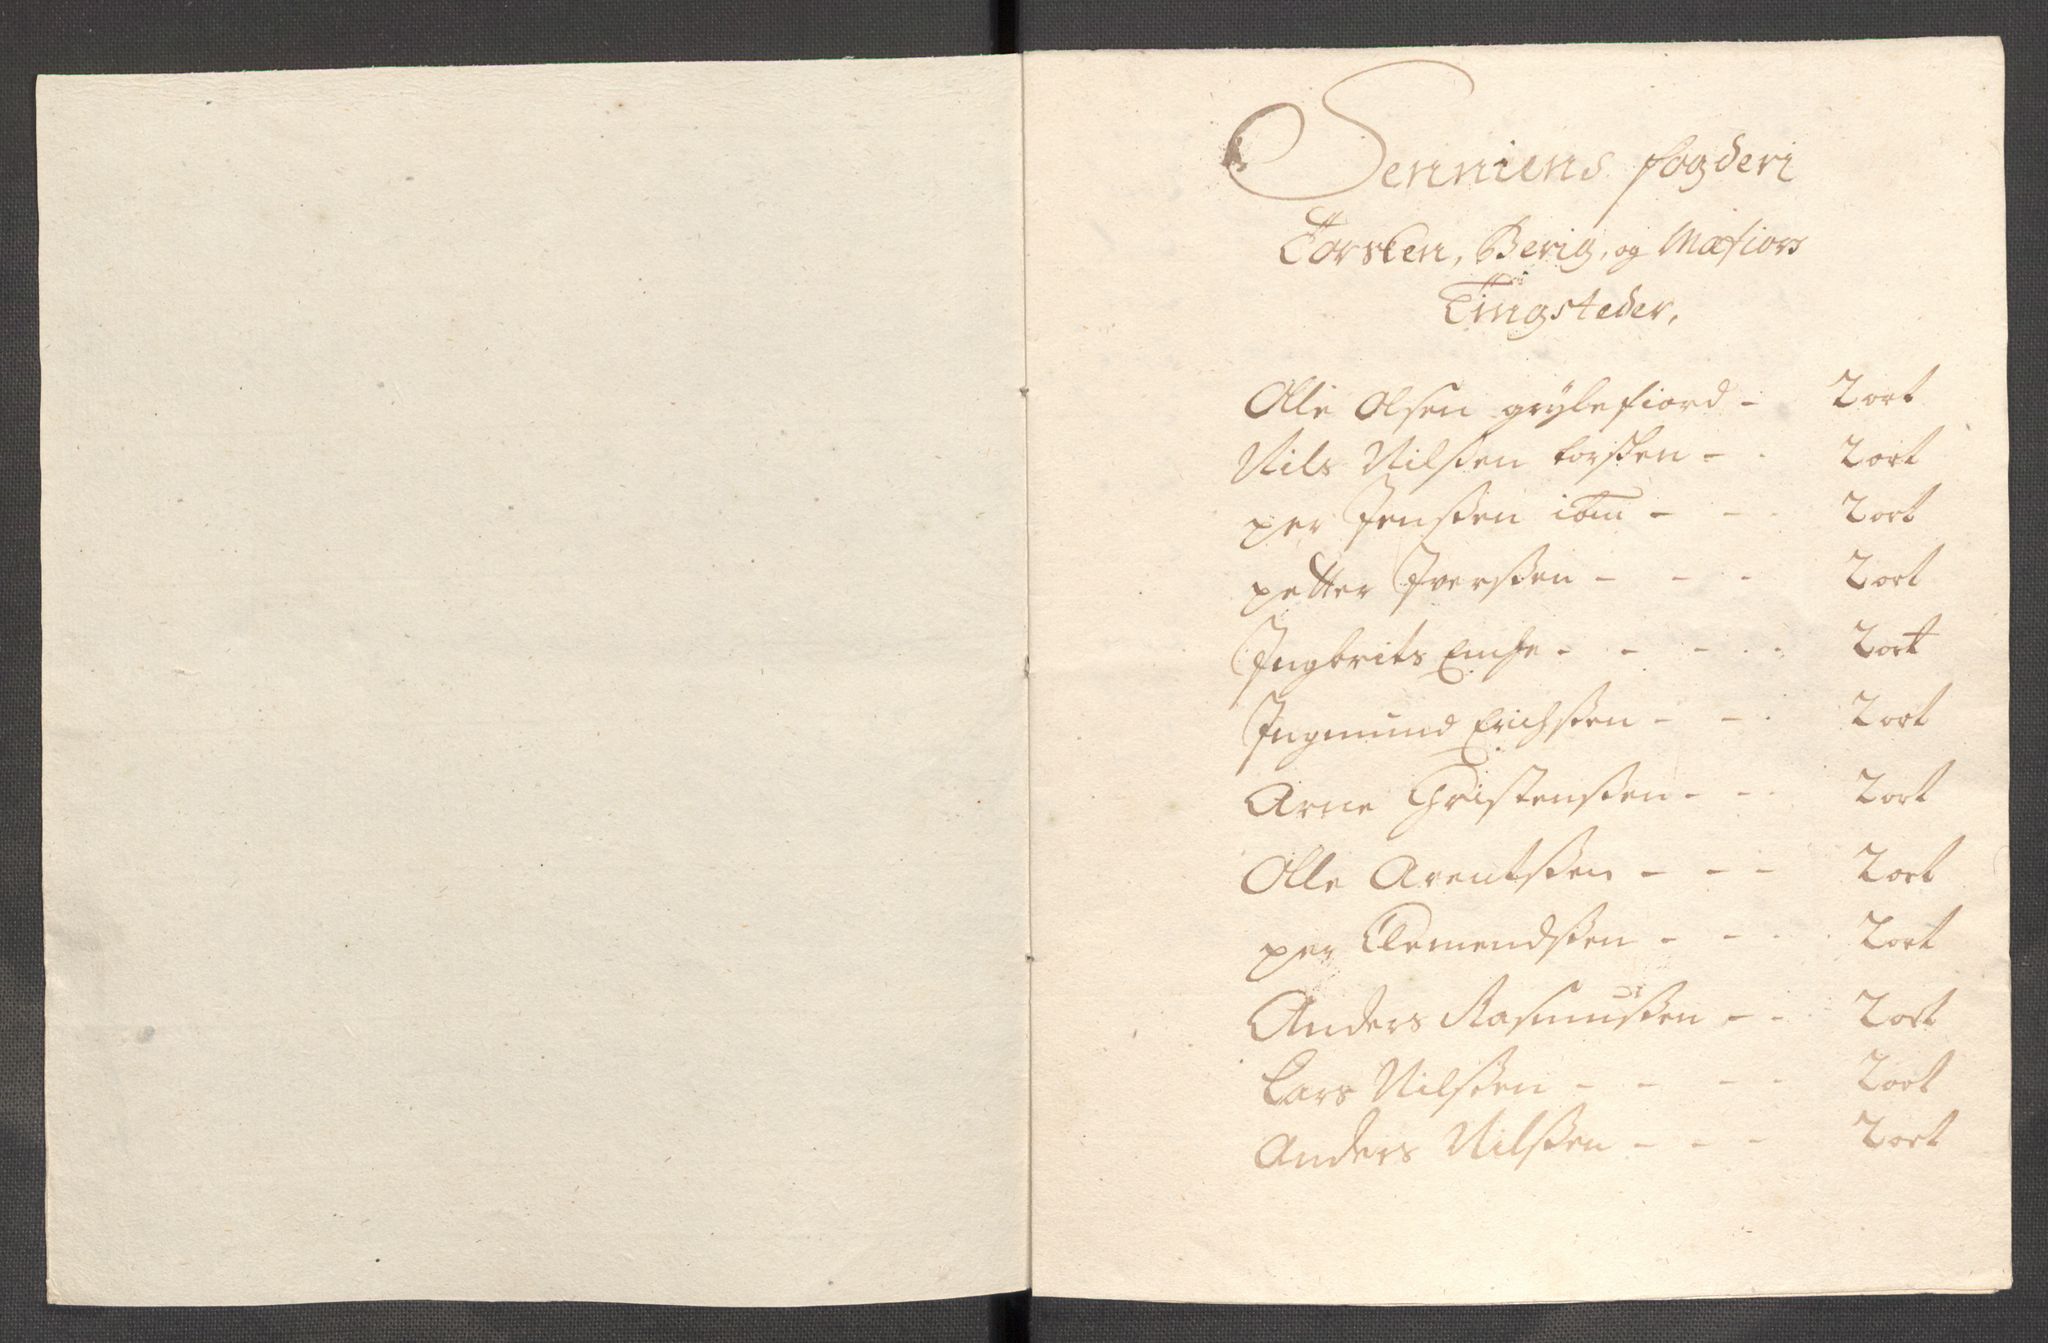 Senniens fogderi
Torsken, Berig, og Mæfiors
Tingsteder,
Olle Olsen grylefiord - 2 ort
Nils Nilsßen torsken - - 2 ort
per Jensßen ibm - - - 2 ort
petter Iverßen - - - 2 ort
Ingbrits Enche - - - - 2 ort
Ingmund Erichßen - - - 2 ort
Arne Christenßen - - - 2 ort
Olle Arentßen - - - 2 ort
per Clemendßen - - - 2 ort
Anders Rasmußen - - - 2 ort
Lars Nilßen - - - - 2 ort
Anders Nilßen - - - 2 ort